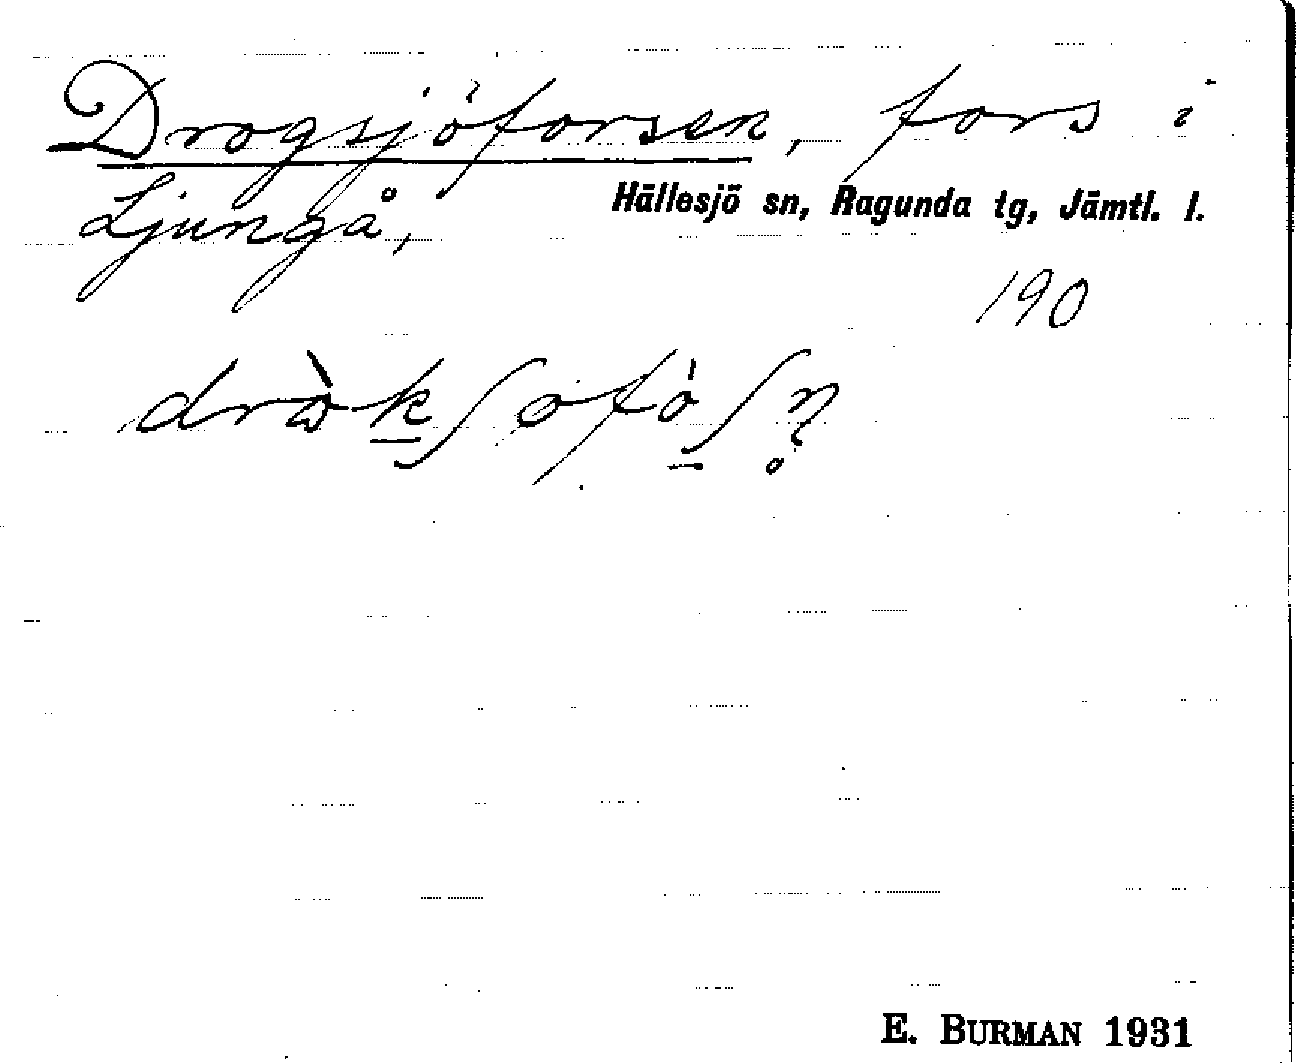 Drogsjöforsen, fors i
Ljungå,
Hällesjö sn, Ragunda tg, Jämtl. l.
190
E. BURMAN 1931